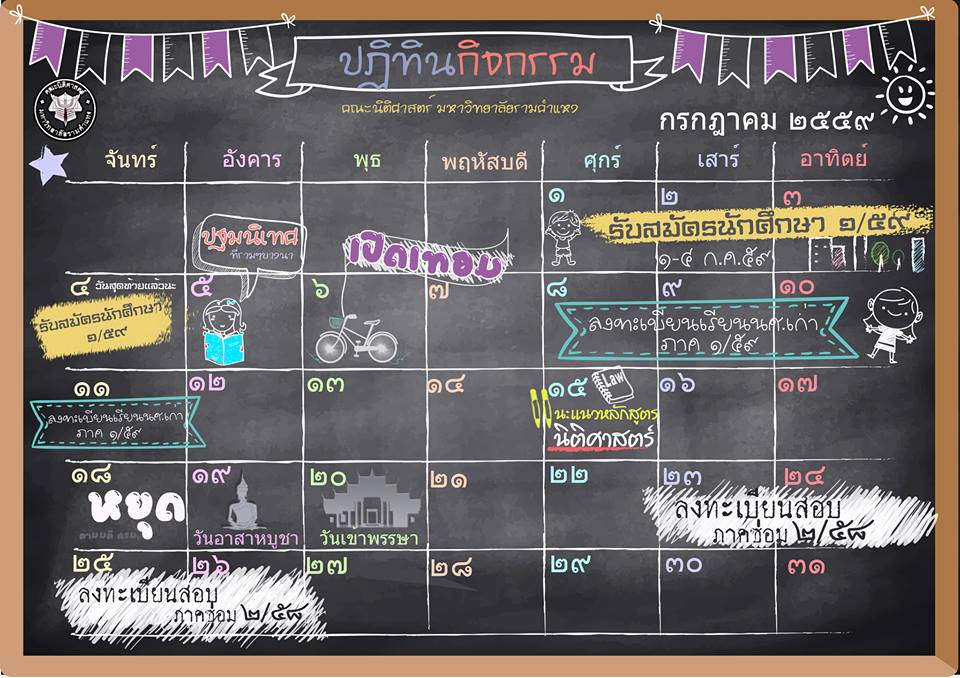 ปฏิทินกิจกรรม
คณะนิติศาสตร์ มหาวิทยาลัยรามคำแหง
กรกฎาคม ๒๕๕๙
คณะนิติศาสตร์
มหาวิทยาลัยรามคำแหง
จันทร์ อังคาร พุธ พฤหัสบดี ศุกร์ เสาร์ อาทิตย์
๑ ๒ ๓
ปฐมนิเทศ
ที่รามฯบางนา
เปิดเทอม
รับสมัครนักศึกษา ๑/๕๙
๑-๔ ก.ค.๕๙
๔ วันสุดท้ายแล้วนะ ๕ ๖ ๗ ๘ ๙ ๑๐
รับสมัครนักศึกษา
๑/๕๙
ลงทะเบียนเรียนนศ.เก่า
ภาค ๑/๕๙
๑๑ ๑๒ ๑๓ ๑๔ ๑๕ ๑๖ ๑๗
ลงทะเบียนเรียนนศ.เก่า
ภาค ๑/๕๙
Law
แนะแนวหลักสูตร
นิติศาสตร์
๑๘ ๑๙ ๒๐ ๒๑ ๒๒ ๒๓ ๒๔
หยุด
ตามมติ ครม.
วันอาสาหบูชา
วันเข้าพรรษา
ลงทะเบียนสอบ
ภาคซ่อม ๒/๕๘
๒๕ ๒๖ ๒๗ ๒๘ ๒๙ ๓๐ ๓๑
ลงทะเบียนสอบ
ภาคซ่อม ๒/๕๘